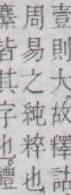 壹則大故釋詁
周易之純粹也
縻皆其字也禮